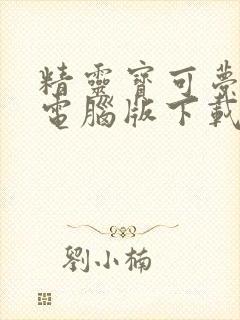 精靈寶可夢
電腦版下載
劉小楠